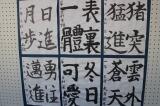 猪突
猛進
表裏
一體
日進
月歩
雲外
蒼天
冬日
可愛
勇往
邁進